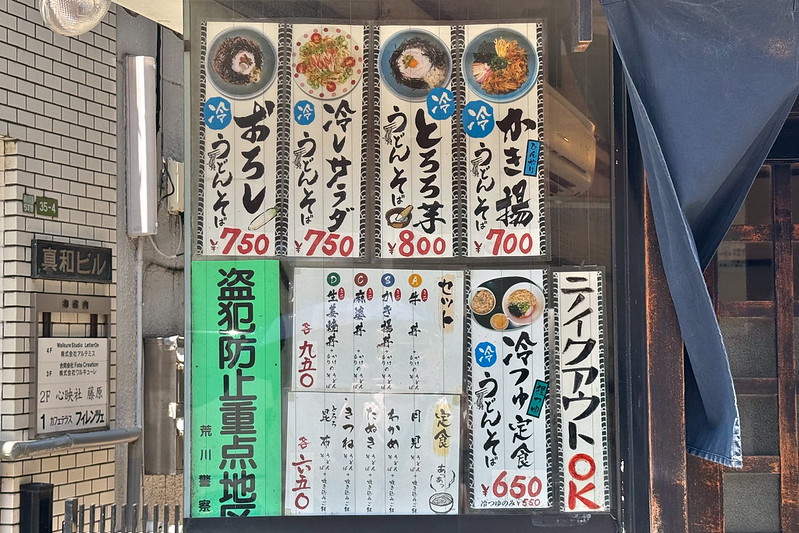 冷
おろし
うどん そば
¥750
冷
冷しサラダ
うどん・そば
¥750
冷
とろろ芋
うどん そば
¥800
冷
かき揚
うどん そば
¥700
盗犯防止重点地区
荒川警察
セット
A 牛丼
B かき揚丼
C 麻婆丼
D 生姜焼丼
各九五〇
定食
月見
わかめ
たぬき
きつね
とろろ昆布
各六五〇
冷
冷つゆ定食
うどん そば
¥650
冷つゆのみ¥550
テイクアウト
OK
35-4
真和ビル
4F
Walkure Studio LetterOn
株式会社アルテミス
3F
合同会社Fate Creation
株式会社ワルキューレ
2F 心映社 藤原
1 カフェテラス フィレンツェ